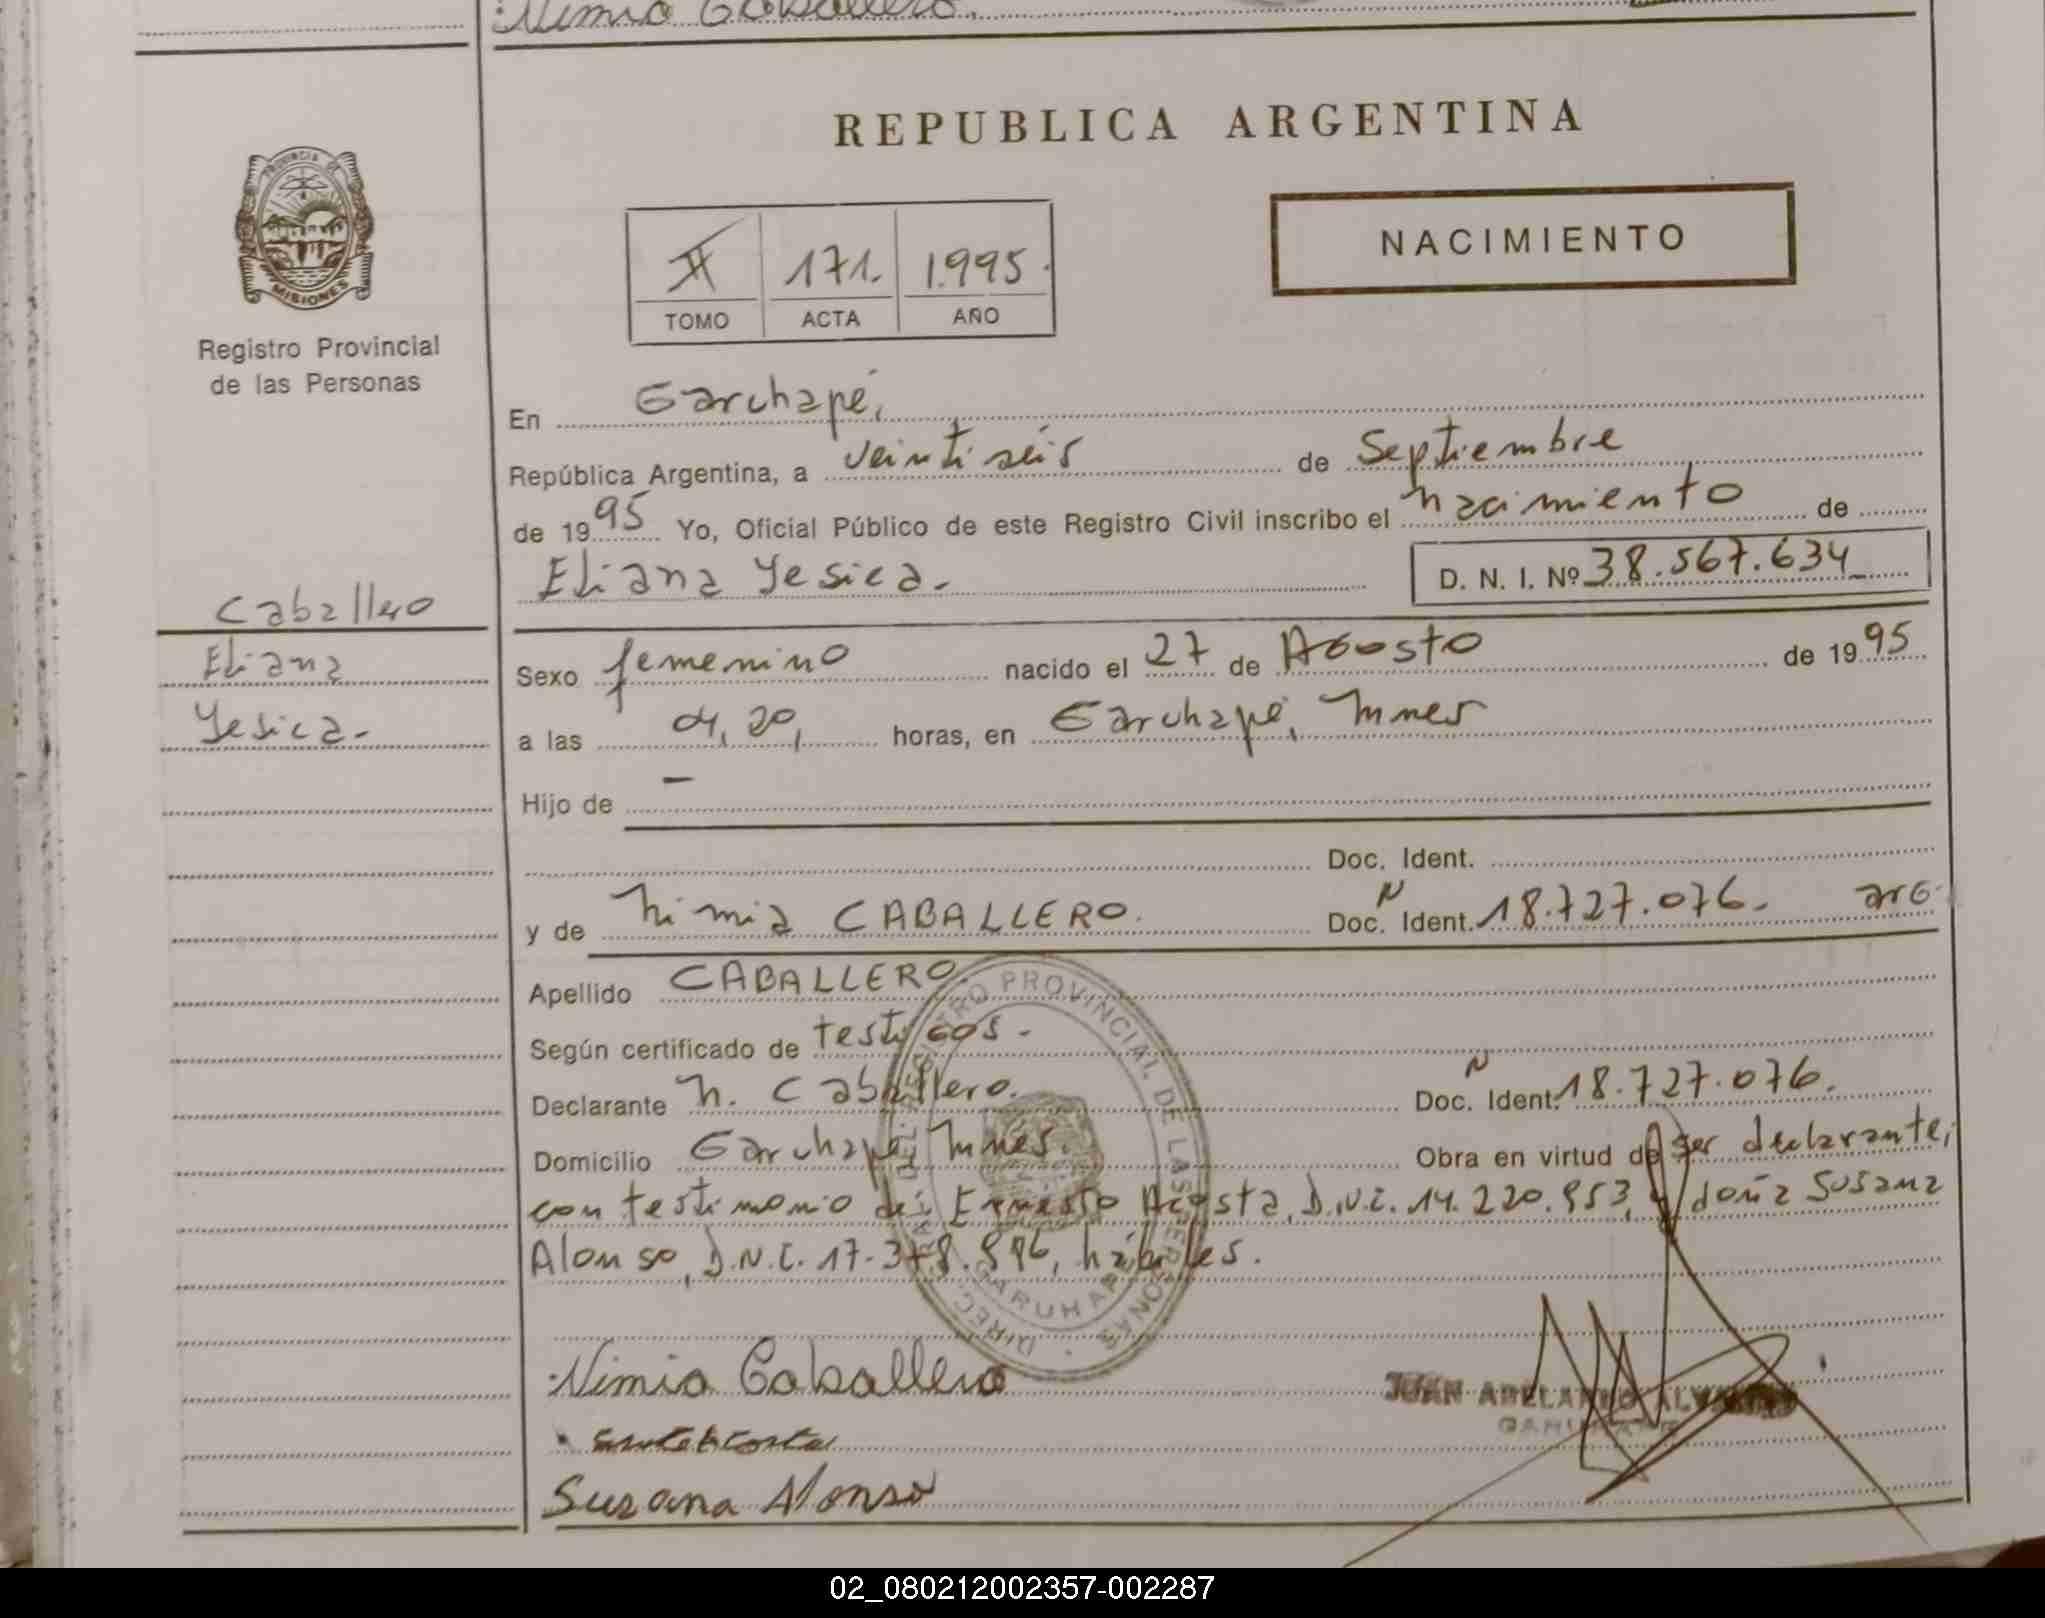 Nimia Caballero.
REPUBLICA ARGENTINA
PROVINCIA DE
MISIONES
Registro Provincial
de las Personas
II 171. 1995.
TOMO ACTA AÑO
NACIMIENTO
En Garuhapé,
República Argentina, a veintiseis de Septiembre
de 1995 Yo, Oficial Público de este Registro Civil inscribo el nacimiento de
Eliana Yesica.
D. N. I. Nº 38.567.634
Caballero
Eliana
Yesica.
Sexo femenino nacido el 27 de Agosto de 1995
a las 04,20, horas, en Garuhapé, Mnes
Hijo de —
Doc. Ident.
y de Nimia CABALLERO. Doc. N Ident. 18.727.076. arg.
Apellido CABALLERO.
Según certificado de testigos.
Declarante N. Caballero. Doc. N Ident. 18.727.076.
Domicilio Garuhapé Mnes. Obra en virtud de ser declarante,
con testimonio de: Ernesto Acosta, D.N.I. 14.220.953, y doña Susana
Alonso, D.N.I. 17.378.896, hábiles.
DIREC. GRAL. DEL REGISTRO PROVINCIAL DE LAS PERSONAS
GARUHAPE
Nimia Caballero
JUAN ABELARDO
GARUHAPE
Susana Alonso
02_080212002357-002287